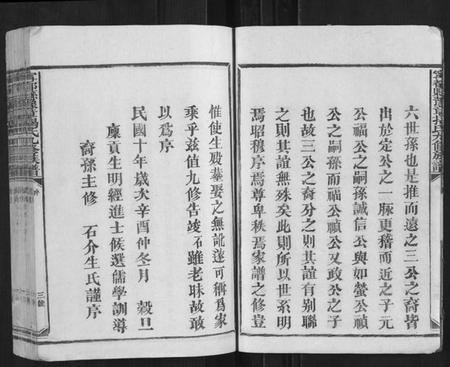 六世孫也是推而遠之三公之裔皆
出於定公之一脈更稽而近之子元
公福公之嗣孫誠信公與如螢公禎
公之嗣孫而福公禎公又政公之子
也以三公之裔分之則其誼有別聯
之則其誼無殊矣此則所以世系明
焉昭穆序焉尊卑秩焉家譜之修豈
惟使生殁葬娶之無訛遂可稱爲家
乘乎茲值九修告竣石雖老昧故敢
以爲序
民國十年歲次辛酉仲冬月 穀旦
廩貢生明經進士候選儒學訓導
裔孫主修 石介生氏謹序